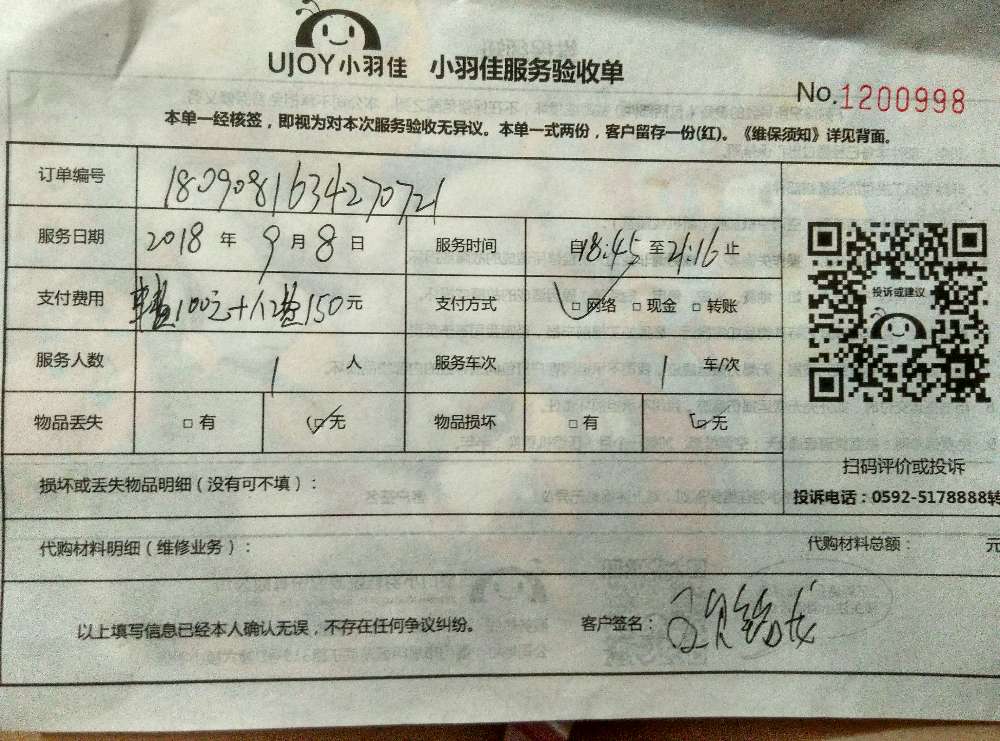 UJOY小羽佳 小羽佳服务验收单
No.1200998
本单一经核签，即视为对本次服务验收无异议。本单一式两份，客户留存一份(红)。《维保须知》详见背面。
订单编号 1809081634270721
服务日期 2018 年 9 月 8 日 服务时间 自18:45 至21:16 止
支付费用 100元+ 150元 支付方式 □ 网络 □ 现金 □ 转账
服务人数 1 人 服务车次 1 车/次
物品丢失 □ 有 ☑ 无 物品损坏 □ 有 ☑ 无
投诉或建议
扫码评价或投诉
损坏或丢失物品明细（没有可不填）：
投诉电话：0592-5178888转
代购材料明细（维修业务）： 代购材料总额： 元
以上填写信息已经本人确认无误，不存在任何争议纠纷。 客户签名：